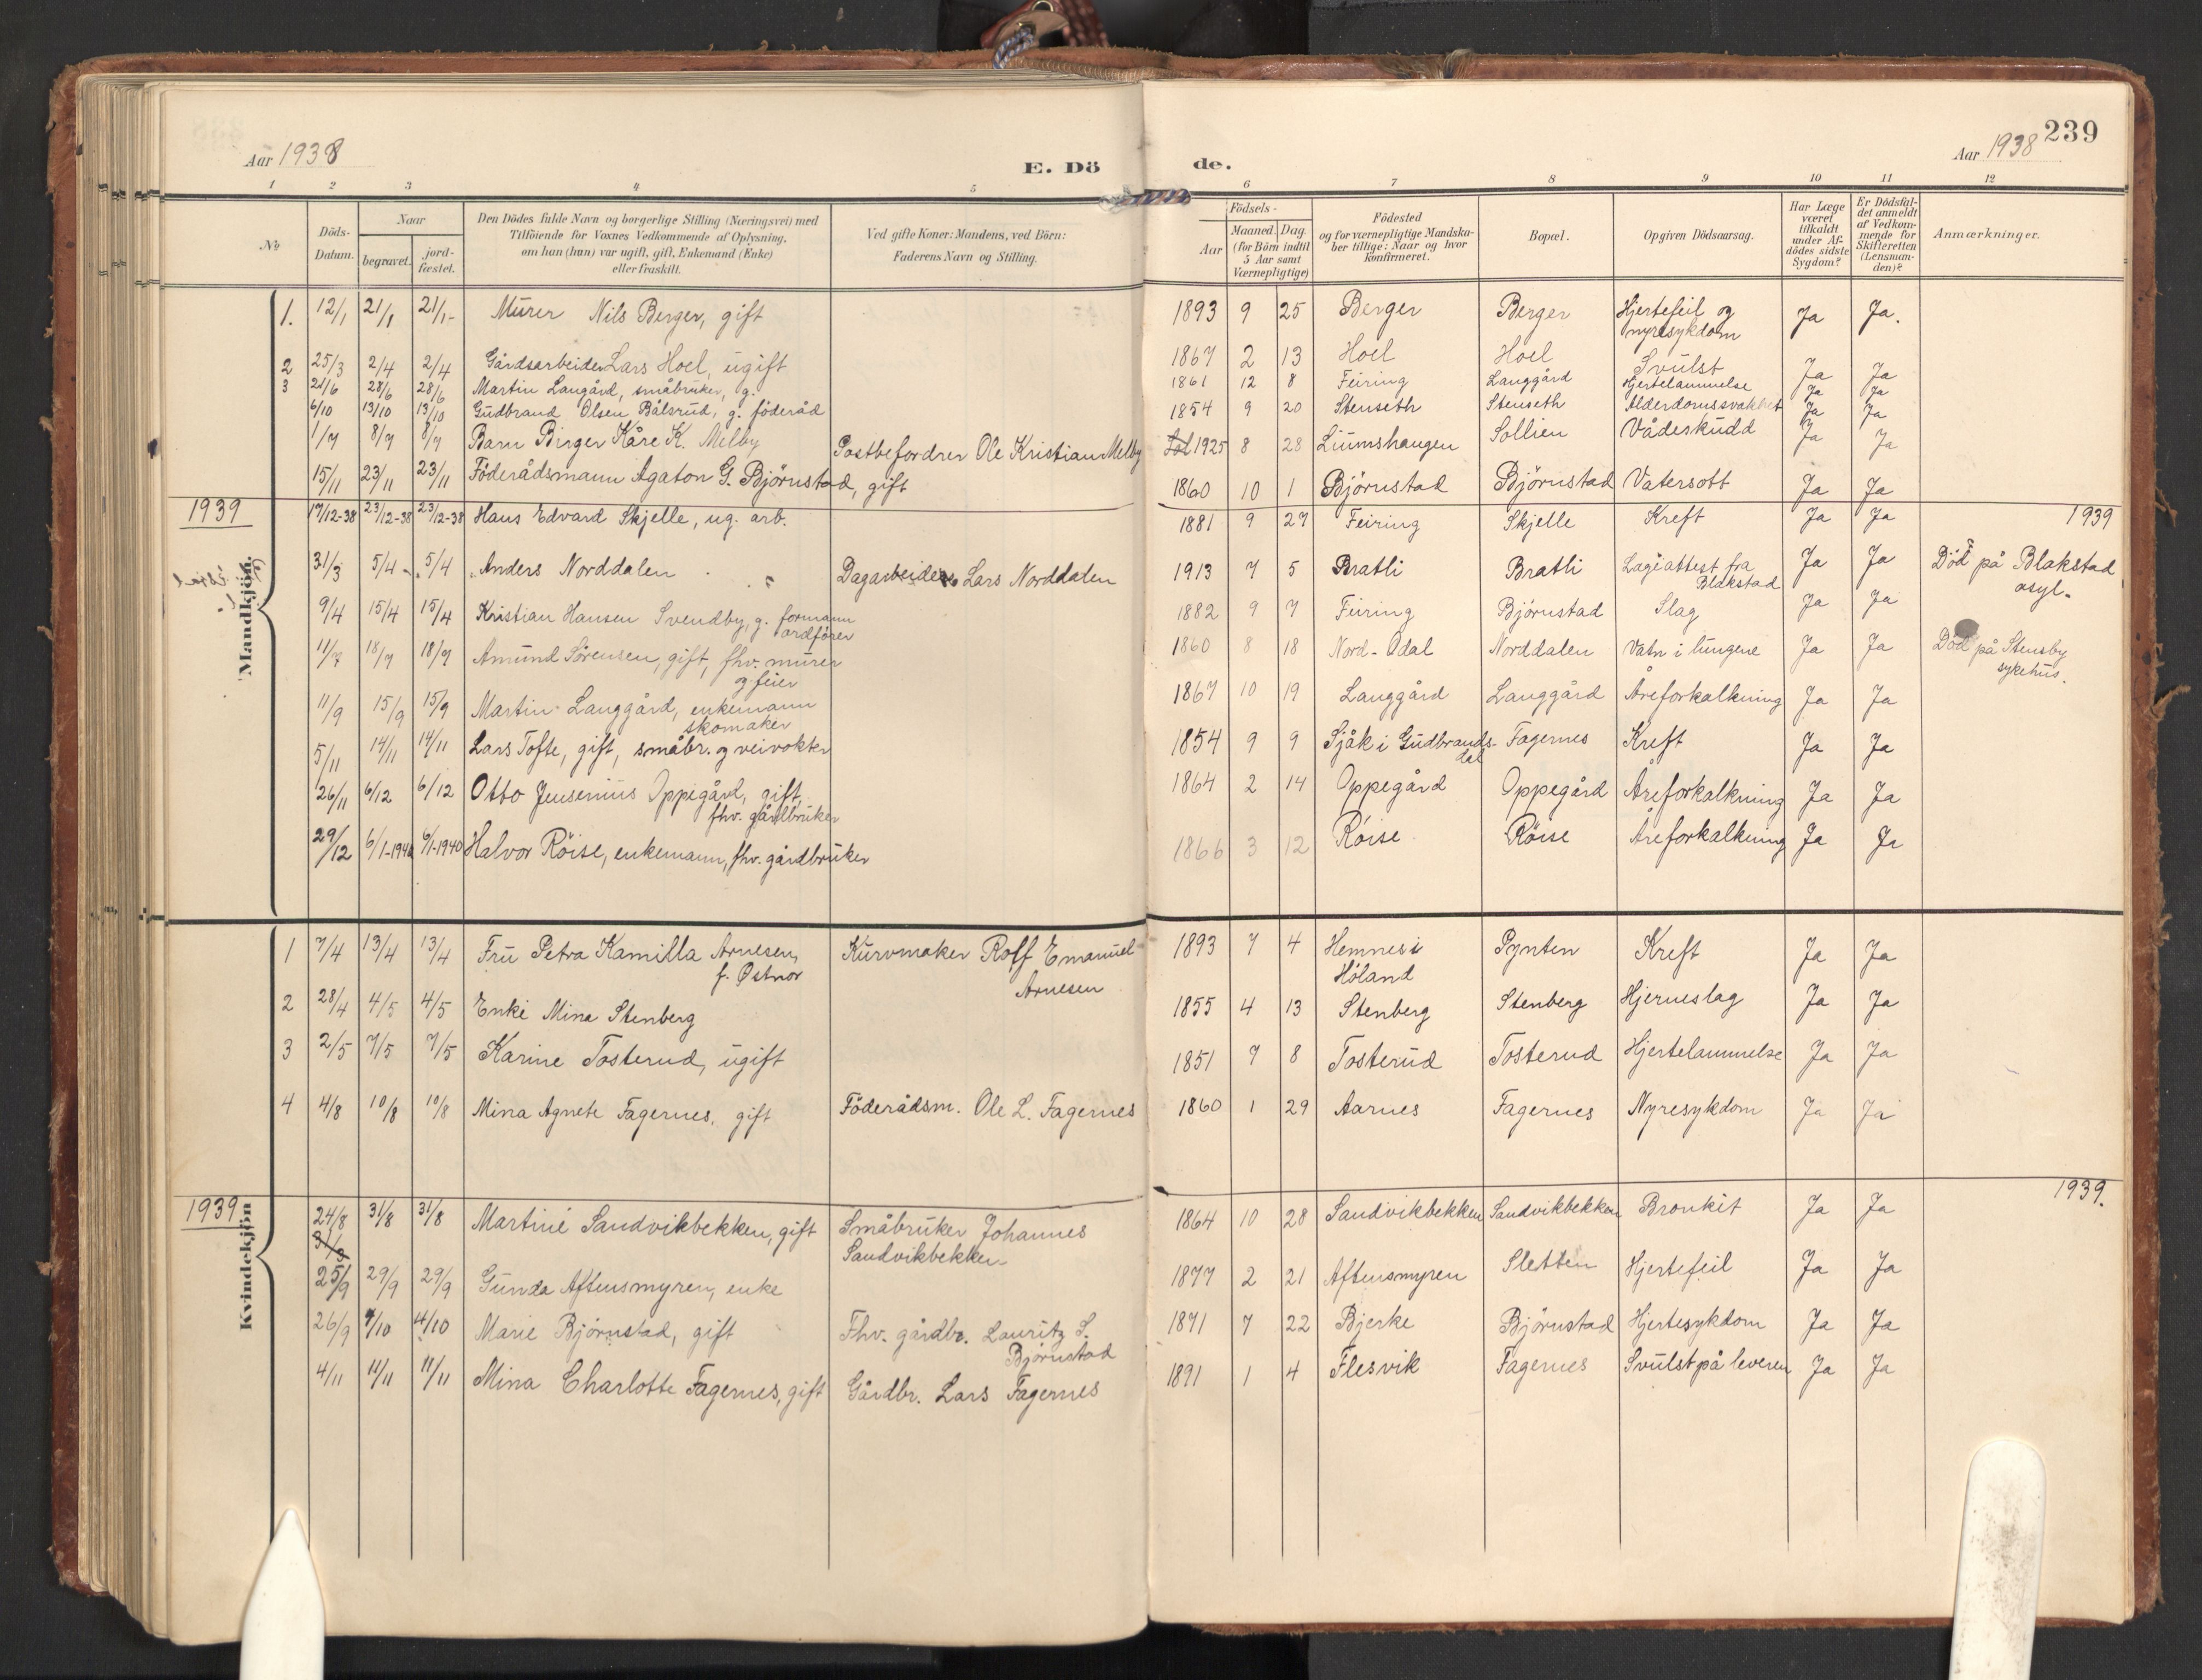 Aar 1938
E. Dö
de.
Aar 1938 239
1 2 3 4 5 6 7 8 9 10 11 12
No
Döds-Datum.
Naar
begravet.
jord-fæstet.
Den Dödes fulde Navn og borgerlige Stilling (Næringsvei) med
Tilföiende for Voxnes Vedkommende af Oplysning,
om han (hun) var ugift, gift, Enkemand (Enke)
eller fraskilt.
Ved gifte Koner: Mandens, ved Börn:
Faderens Navn og Stilling.
Födsels-
Aar
Maaned. Dag.
(for Börn indtil
5 Aar samt
Værnepligtige)
Födested
og for værnepligtige Mandska-
ber tillige: Naar og hvor
konfirmeret.
Bopæl.
Opgiven Dödsaarsag.
Har Læge
været
tilkaldt
under Af-
dödes sidste
Sygdom?
Er Dödsfal-
det anmeldt
af Vedkom-
mende for
Skifteretten
(Lensman-
den)?
Anmærkninger.
Mandkjön.
1. 12/1 21/1 21/1- Murer Nils Berger, gift 1893 9 25 Berger Berger Hjertefeil og nyresykdom Ja Ja.
2 25/3 2/4 2/4 Gårdsarbeider Lars Hoel, ugift 1867 2 13 Hoel Hoel Svulst Ja Ja
3 21/6 28/6 28/6 Martin Langård, småbruker, g. 1861 12 8 Feiring Langgård Hjertelammelse Ja Ja
6/10 13/10 13/10 Gudbrand Olsen Bålsrud, g. föderåd 1854 9 20 Stenseth Stenseth Alderdomssvakhet Ja Ja
1/7 8/7 8/7 Barn Birger Kåre K. Melby Postbefordrer Ole Kristian Melby 1925 8 28 Liumshaugen Sollien Vådeskudd Ja Ja
15/11 23/11 23/11 Föderådsmann Agaton G. Björnstad, gift 1860 10 1 Björnstad Björnstad Vatersott Ja Ja
1939 17/12-38 23/12-38 23/12-38 Hans Edvard Skjelle, ug. arb. 1881 9 27 Feiring Skjelle Kreft Ja Ja 1939
31/3 5/4 5/4 Anders Norddalen Dagarbeider Lars Norddalen 1913 7 5 Bratli Bratli Lægeattest fra Blakstad Ja Ja Död på Blakstad asyl.
9/4 15/4 15/4 Kristian Hansen Svendby, g. formann ordförer 1882 9 7 Feiring Björnstad Slag Ja Ja
11/7 18/7 18/7 Amund Sörensen, gift, fhv. murer og feier 1860 8 18 Nord-Odal Norddalen Vatn i lungene Ja Ja Död på Stensby sykehus.
11/9 15/9 15/9 Martin Langgård, enkemann skomaker 1867 10 19 Langgård Langgård Åreforkalkning Ja Ja
5/11 14/11 14/11 Lars Tofte, gift, småbr. og veivokter 1854 9 9 Sjåk i Gudbrands-dal Fagernes Kreft Ja Ja
26/11 6/12 6/12 Otto Jensenius Oppegård, gift, fhv. gårdbruker 1864 2 14 Oppegård Oppegård Åreforkalkning Ja Ja
29/12 6/1-1940 6/1-1940 Halvor Röise, enkemann, fhv. gårdbruker 1866 3 12 Röise Röise Åreforkalkning Ja Ja
Kvindekjön
1 7/4 13/4 13/4 Fru Petra Kamilla Arnesen, f. Østnor Kurvmaker Rolf Emanuel Arnesen 1893 7 4 Hemnes i Höland Pynten Kreft Ja Ja
2 28/4 4/5 4/5 Enke Mina Stenberg 1855 4 13 Stenberg Stenberg Hjerneslag Ja Ja
3 2/5 7/5 7/5 Karine Tosterud, ugift 1851 9 8 Tosterud Tosterud Hjertelammelse Ja Ja
4 4/8 10/8 10/8 Mina Agnete Fagernes, gift Föderådsm. Ole L. Fagernes 1860 1 29 Aarnes Fagernes Nyresykdom Ja Ja
1939 24/8 31/8 31/8 Martine Sandvikbekken, gift Småbruker Johannes Sandvikbekken 1864 10 28 Sandvikbekken Sandvikbekken Bronkit Ja Ja 1939.
25/9 29/9 29/9 Gunda Aftensmyren, enke 1877 2 21 Aftensmyren Sletten Hjertefeil Ja Ja
26/9 4/10 4/10 Marie Björnstad, gift Fhv. gårdbr. Lauritz S. Björnstad 1871 7 22 Bjerke Björnstad Hjertesykdom Ja Ja
4/11 11/11 11/11 Mina Charlotte Fagernes, gift Gårdbr. Lars Fagernes 1891 1 4 Flesvik Fagernes Svulst på leveren Ja Ja